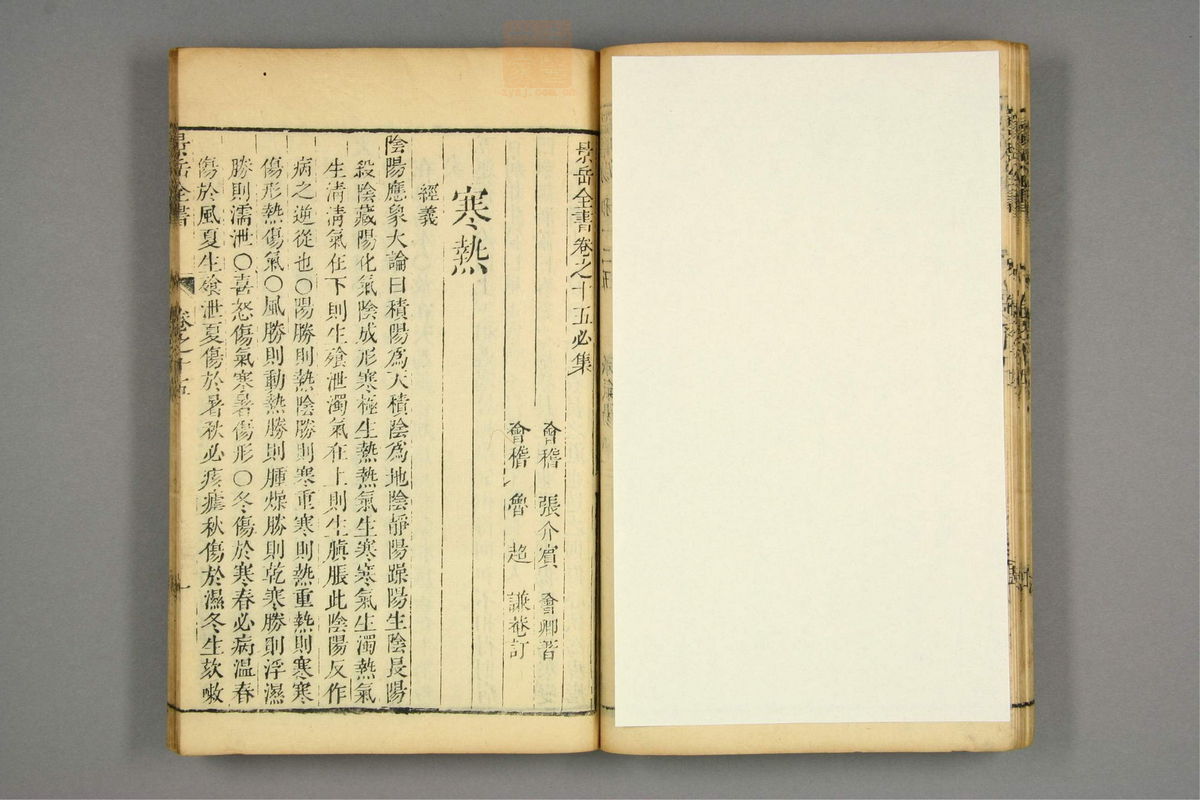 景岳全書卷之十五必集
會稽 張介賓 會卿著
會稽 魯超 謙菴訂
寒熱
經義
陰陽應象大論曰積陽為天積陰為地陰靜陽躁陽生陰長陽
殺陰藏陽化氣陰成形寒極生熱熱氣生寒寒氣生濁熱氣
生淸淸氣在下則生飧泄濁氣在上則生䐜脹此陰陽反作
病之逆從也○陽勝則熱陰勝則寒重寒則熱重熱則寒寒
傷形熱傷氣○風勝則動熱勝則腫燥勝則乾寒勝則浮濕
勝則濡泄○喜怒傷氣寒暑傷形○冬傷於寒春必病溫春
傷於風夏生飧泄夏傷於暑秋必痎瘧秋傷於濕冬生欬嗽
景岳全書 卷之十五 一